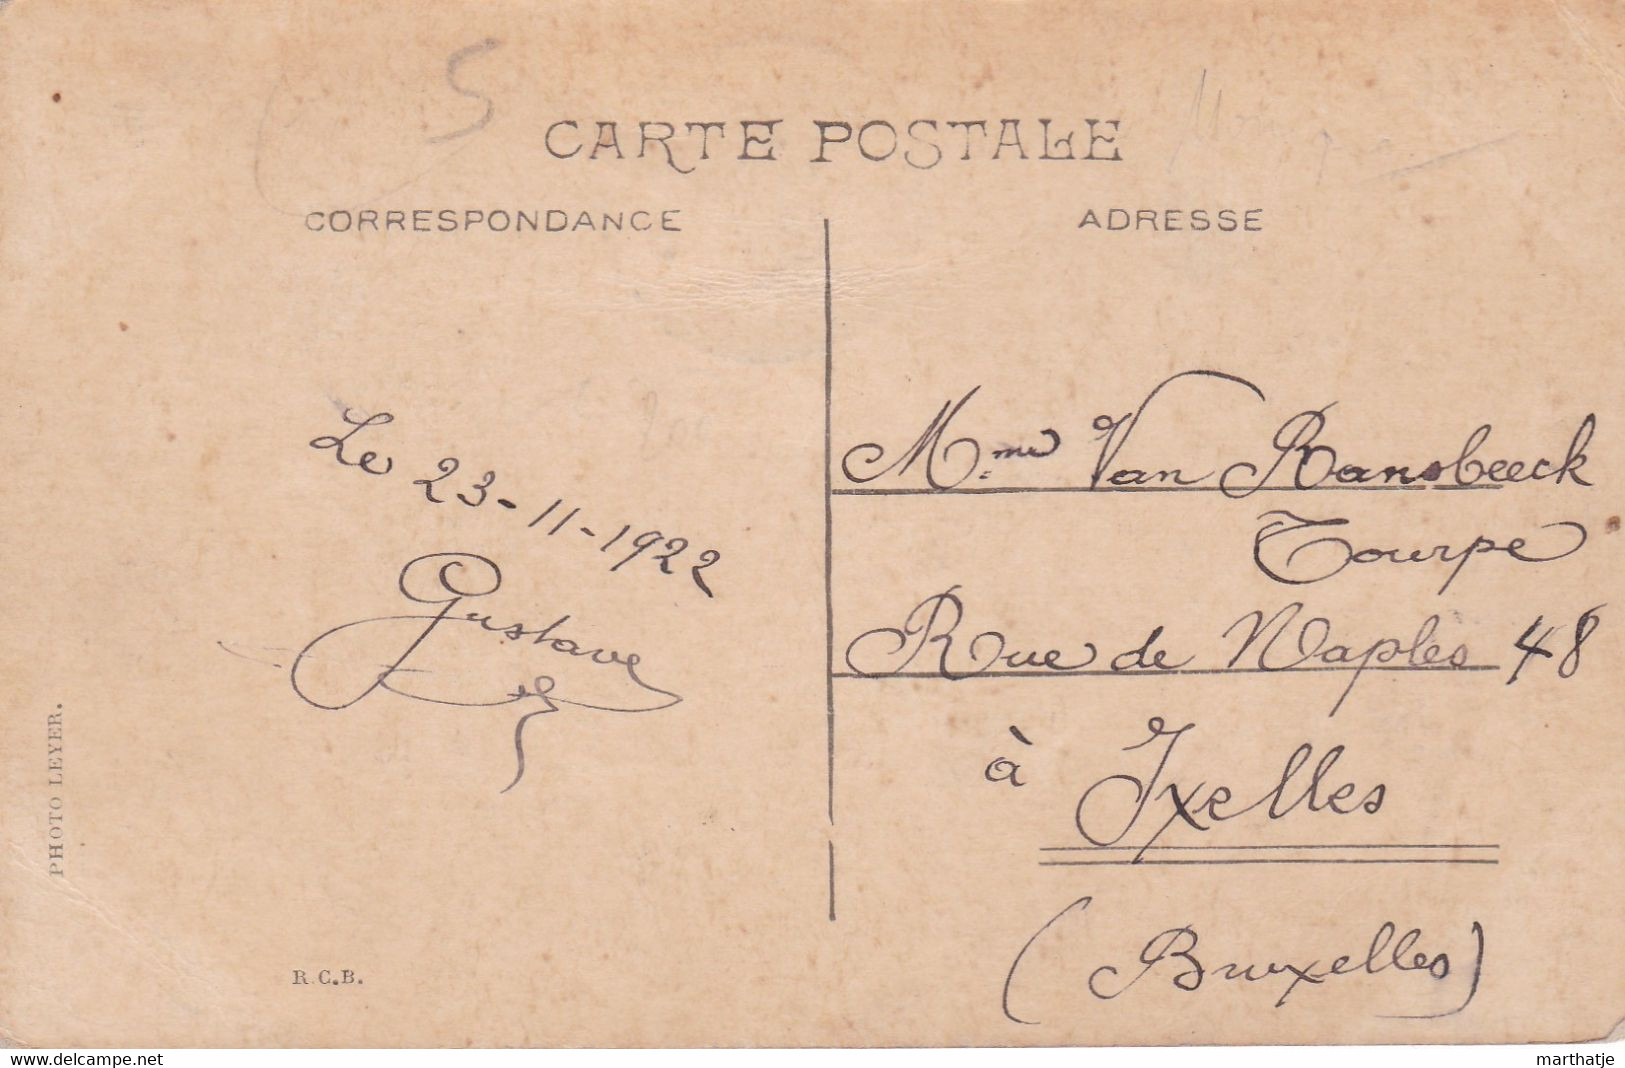 5
CARTE POSTALE
CORRESPONDANCE
ADRESSE
Le 23-11-1922
Gustave
Mme Van Ransbeeck
Tourpe
Rue de Naples 48
à Ixelles
(Bruxelles)
PHOTO LEYER.
R.C.B.
www.delcampe.net
marthatje